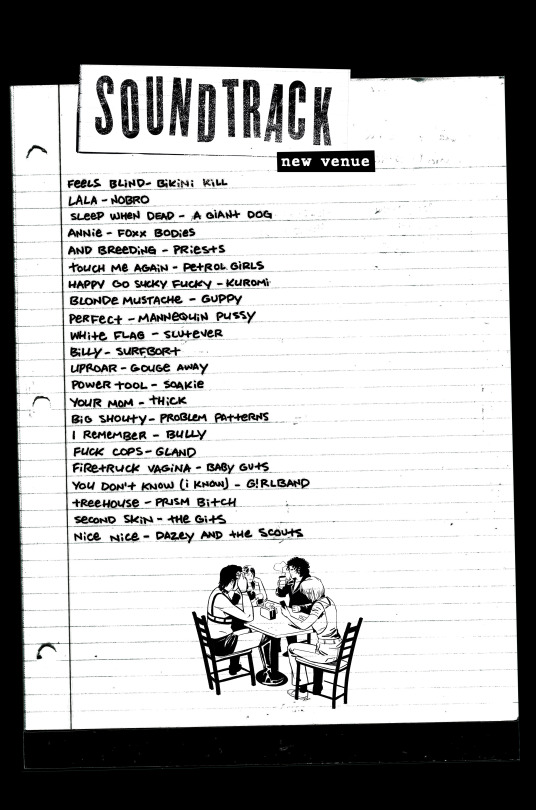 SOUNDTRACK
new venue
FEELS BLIND - BIKINI KILL
LALA - NOBRO
SLEEP WHEN DEAD - A GIANT DOG
ANNIE - FOXX BODIES
AND BREEDING - PRIESTS
TOUCH ME AGAIN - PETROL GIRLS
HAPPY GO SUCKY FUCKY - KUROMI
BLONDE MUSTACHE - GUPPY
PERFECT - MANNEQUIN PUSSY
WHITE FLAG - SLUTEVER
BILLY - SURFBORT
UPROAR - GOUGE AWAY
POWER TOOL - SOAKIE
YOUR MOM - THICK
BIG SHOUTY - PROBLEM PATTERNS
I REMEMBER - BULLY
FUCK COPS - GLAND
FIRETRUCK VAGINA - BABY GUTS
YOU DON'T KNOW (I KNOW) - G!RLBAND
TREEHOUSE - PRISM BITCH
SECOND SKIN - THE GITS
NICE NICE - DAZEY AND THE SCOUTS